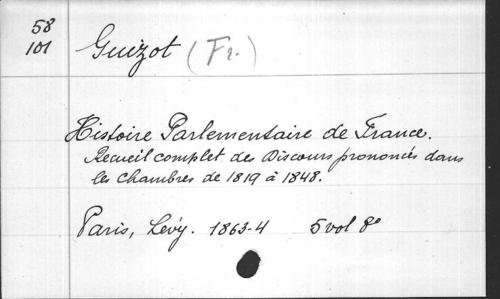 58
101
Guizot (Fr.)
Histoire Parlementaire de France.
Recueil complet des Discours prononcés dans
les Chambres de 1819 à 1848.
Paris, Lévy. 1863-4 5 vol 8º